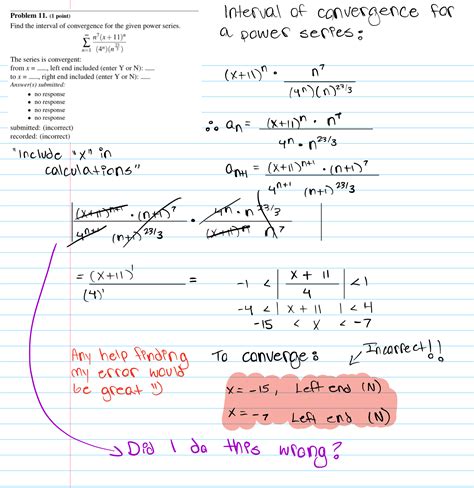 Problem 11. (1 point)
Find the interval of convergence for the given power series.
∞
∑ n⁷(x+11)ⁿ / (4ⁿ)(n^(23/3))
n=1
The series is convergent:
from x = ____, left end included (enter Y or N): ____
to x = ____, right end included (enter Y or N): ____
Answer(s) submitted:
• no response
• no response
• no response
• no response
submitted: (incorrect)
recorded: (incorrect)
"Include "x" in
calculations"
Interval of convergence for
a power series:
(x+11)ⁿ · n⁷ / (4ⁿ)(n)^(23/3)
∴ aₙ = (x+11)ⁿ · n⁷ / 4ⁿ · n^(23/3)
aₙ₊₁ = (x+11)ⁿ⁺¹ · (n+1)⁷ / 4ⁿ⁺¹ (n+1)^(23/3)
| (x+11)ⁿ⁺¹ · (n+1)⁷ / 4ⁿ⁺¹ (n+1)^(23/3) · 4ⁿ · n^(23/3) / (x+11)ⁿ n⁷ |
= (x+11)¹ / (4)¹ = -1 < | x + 11 / 4 | < 1
-4 < | x + 11 | < 4
-15 < x < -7
Any help finding
my error would
be great :)
To converge:
Incorrect!!
x = -15, Left end (N)
x = -7 Left end (N)
Did I do this wrong?